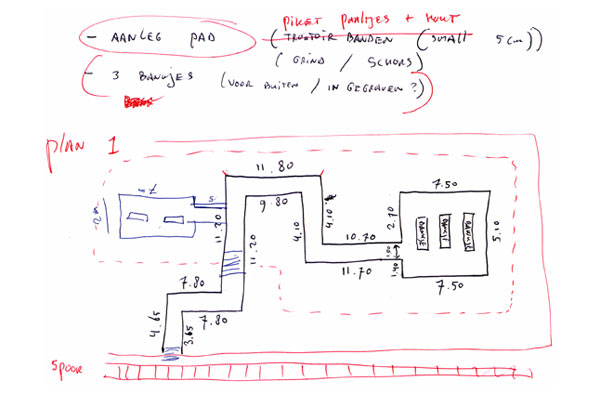 PIKET PAALTJES + HOUT
- AANLEG PAD (TROTTOIR BANDEN (SMALL 5 cm))
(GRIND / SCHORS)
- 3 BANKJES (VOOR BUITEN / INGEGRAVEN?)
plan 1
11.80
9.80
7.50
5
2m
11.20
11.20
4.10
4.10
10.70
11.70
2.70
1.00
1.40
BANKJE
BANKJE
BANKJE
5.10
7.50
7.80
7.80
4.65
3.65
Spoor